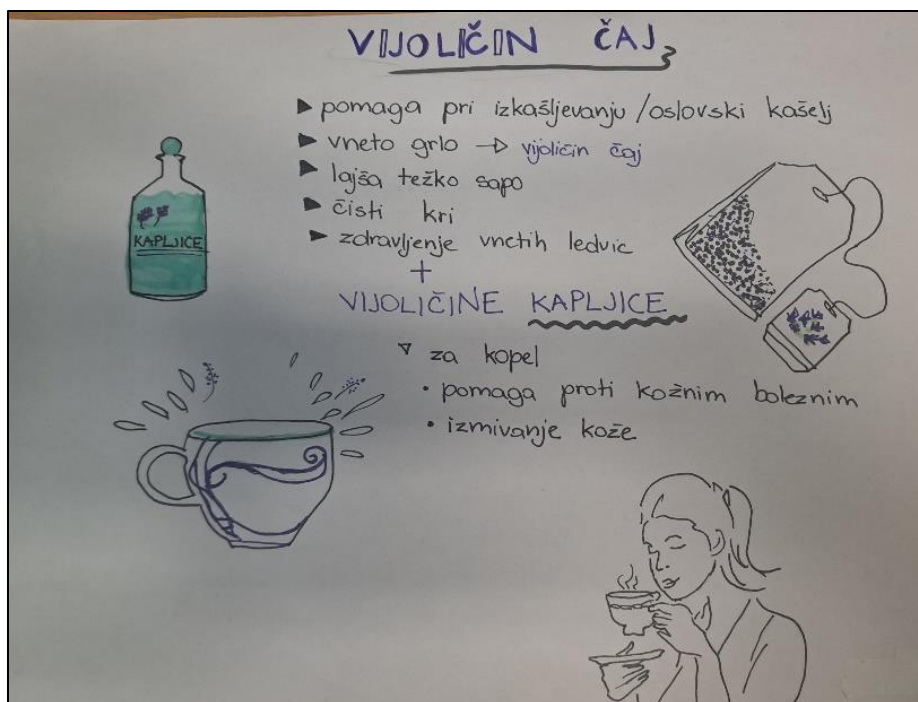 VIJOLIČIN ČAJ
▶ pomaga pri izkašljevanju /oslovski kašelj
▶ vneto grlo → vijoličin čaj
▶ lajša težko sapo
▶ čisti kri
▶ zdravljenje vnetih ledvic
+
VIJOLIČINE KAPLJICE
▽ za kopel
• pomaga proti kožnim boleznim
• izmivanje kože
KAPLJICE